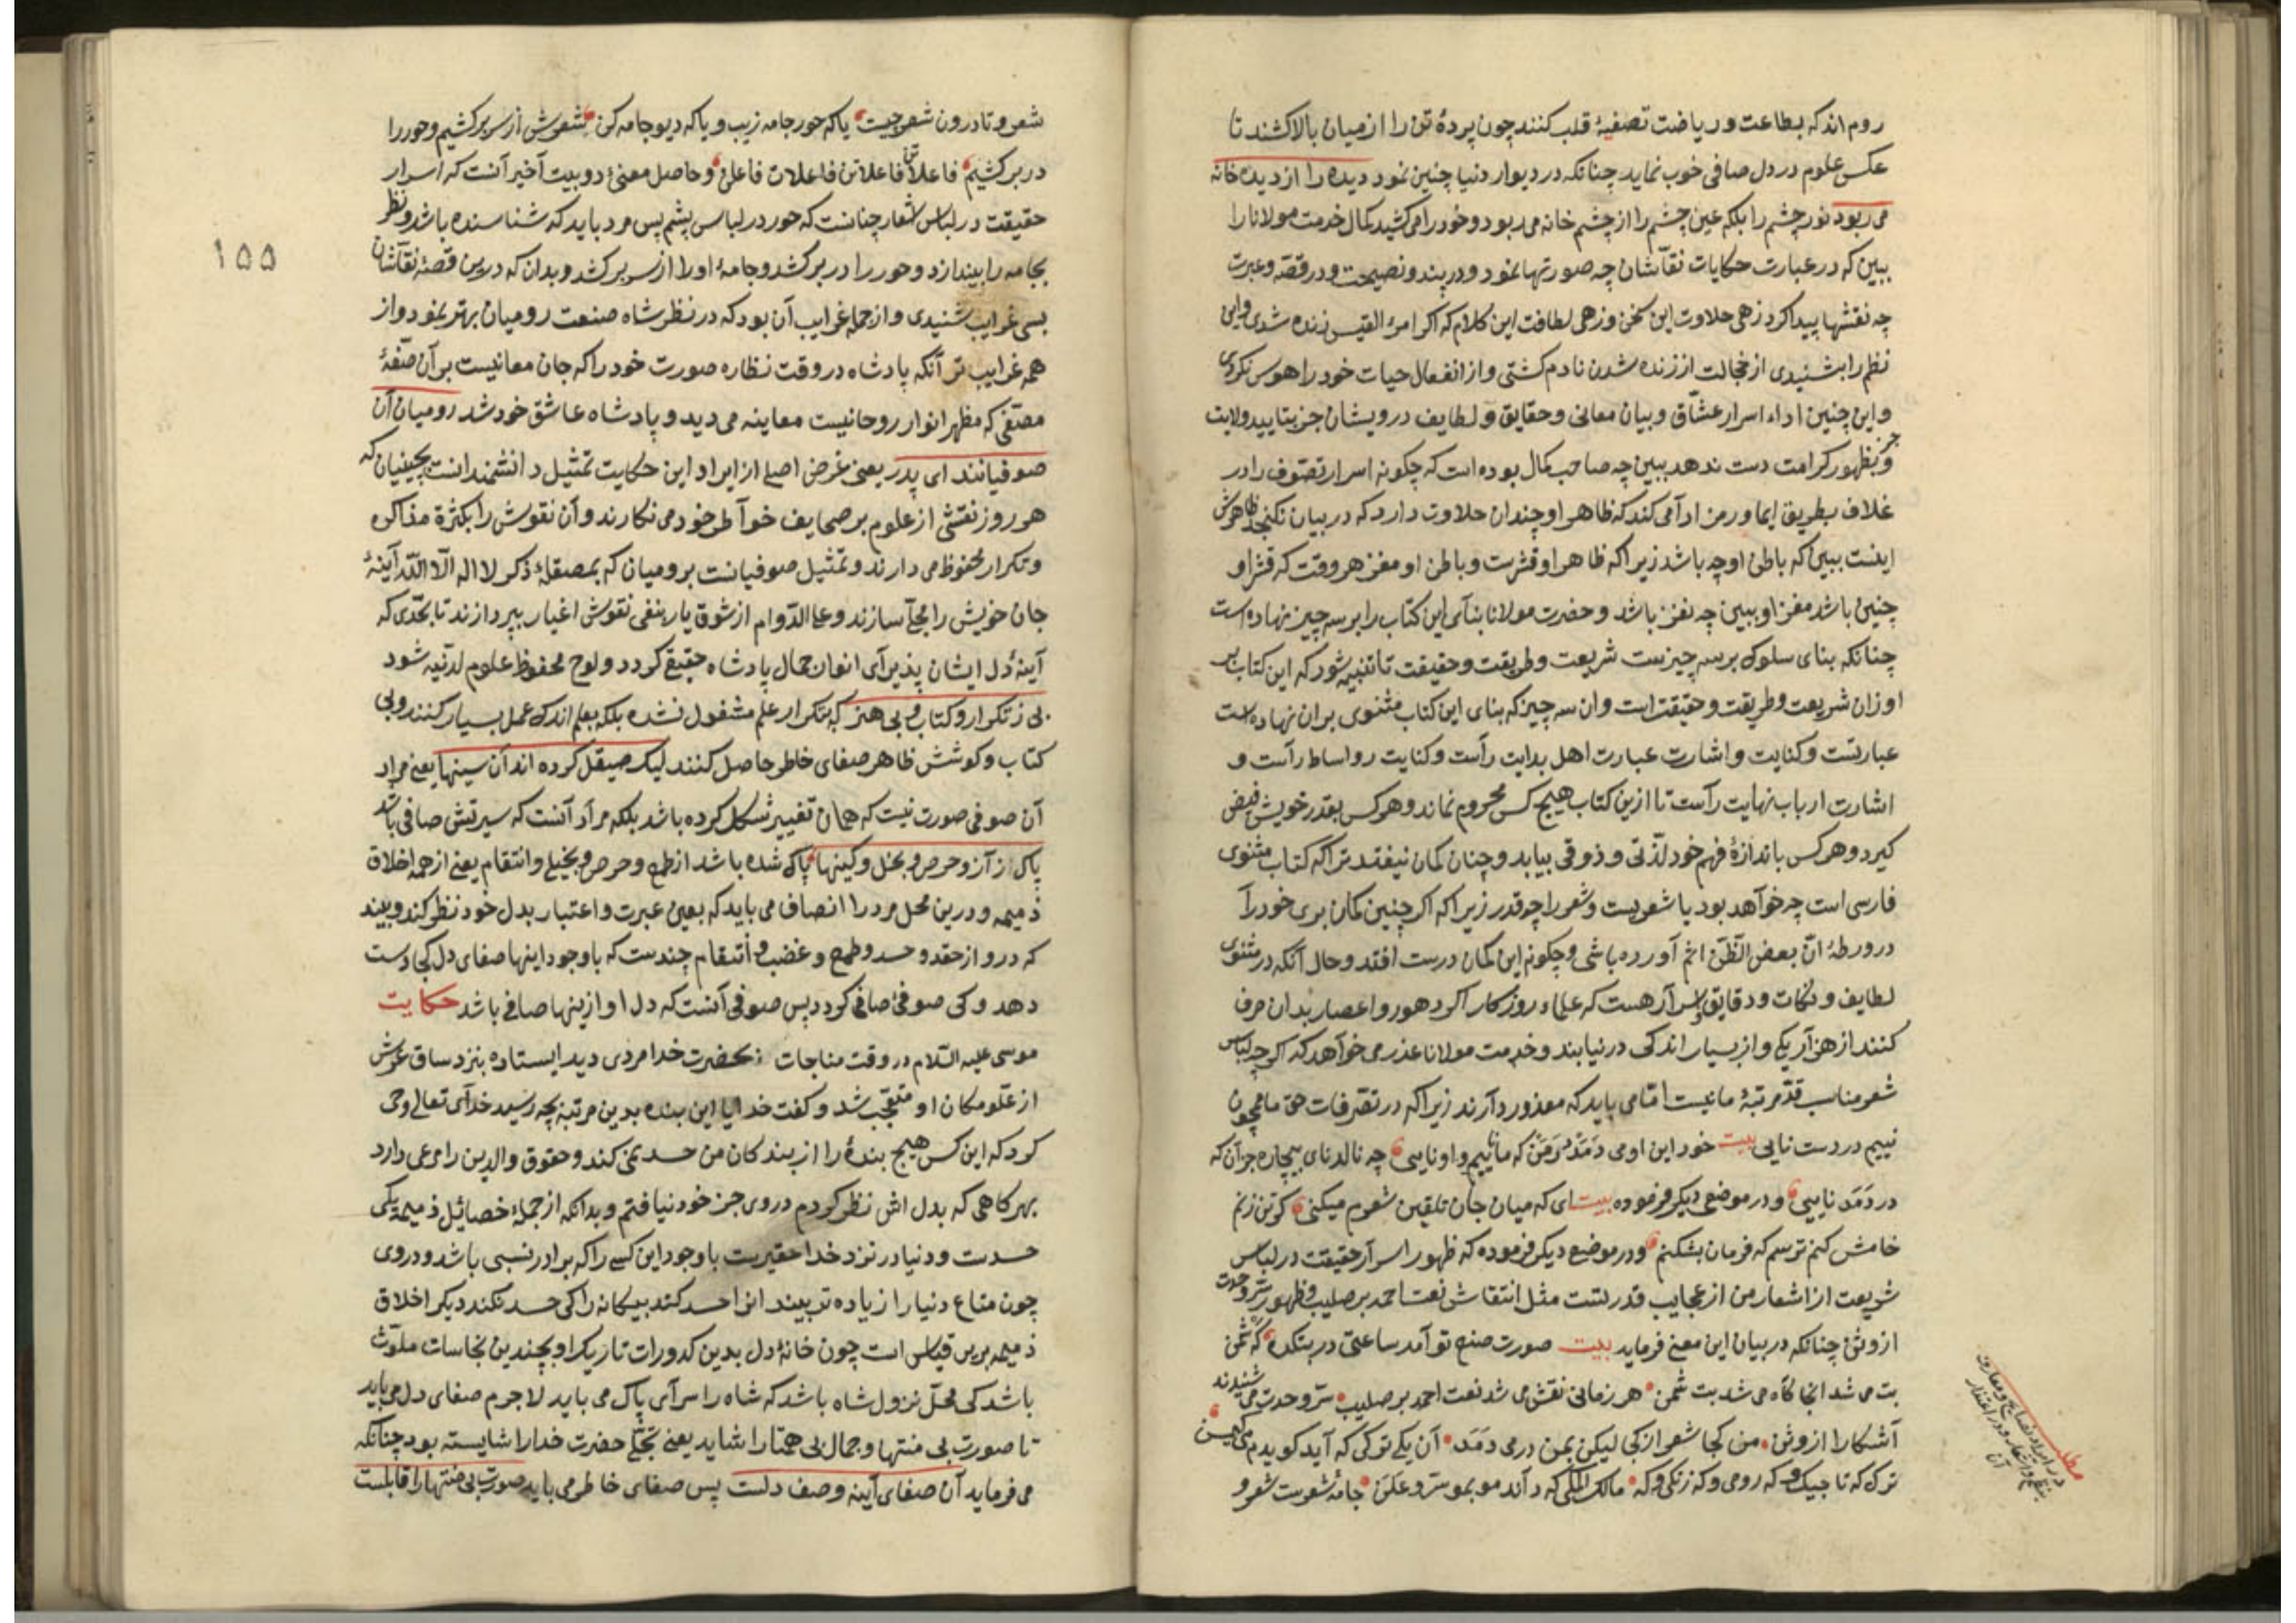 روم اند که بطاعت و ریاضت تصفیۀ قلب کنند چون پردۀ تن را از میان بالا کشند تا
عکس علوم در دل صافی خوب نماید چنانکه در دیوار دنیا چنین نمود دیده را از دیده خانه
می ربود نور چشم را بلکه عین چشم را از چشم خانه می ربود و خود را می کشید کمال خدمت مولانا را
ببین که در عبارت حکایات نقاشان چه صورتها نمود و در پند و نصیحت و در قصه و عبرت
چه نقشها پیدا کرد زهی حلاوت این سخن و زهی لطافت این کلام که اکر امرء القیس زنده شدی و این
نظم را بشنیدی از خجالت از زنده شدن نادم کشتی و از انفعال حیات خود را هوس نکردی
و این چنین اداء اسرار عشاق و بیان معانی و حقایق و لطایف درویشان جز بتایید ولایت
و جز بظهور کرامت دست ندهد ببین چه صاحب کمال بوده است که چکونه اسرار تصوف را در
غلاف بطریق ایما و رمز ادا می کند که ظاهر او چندان حلاوت دارد که در بیان نکنجد ظاهرش
اینست ببین که باطن او چه باشد زیرا که ظاهر او قشرست و باطن او مغز هر وقت که قشر او
چنین باشد مغز او ببین چه نغز باشد و حضرت مولانا بنآی این کتاب را بر سه چیز نهاده است
چنانکه بنای سلوک بر سه چیزست شریعت و طریقت و حقیقت تا تنبیه شود که این کتاب بر
اوزان شریعت و طریقت و حقیقت است وان سه چیز که بنای این کتاب مثنوی بران نهاده است
عبارتست و کنایت و اشارت عبارت اهل بدایت رآست و کنایت رواساط رآست و
اشارت ارباب نهایت رآست تا ازین کتاب هیچ کس محروم نماند و هر کس بقدر خویش فیض
کیرد و هر کس باندازۀ فهم خود لذتی و ذوقی بیابد و چنان کمان نیفتد ترا که کتاب مثنوی
فارسی است چه خوآهد بود یا شعریست و شعر را چه قدر زیرا که اکر چنین کمان بری خود را
در ورطۀ انّ بعض الظّنّ اثم آورده باشی و چکونه این کمان درست افتد و حال آنکه در مثنوی
لطایف و نکات و دقایق و اسرآر هست که علماء روزکار اکر دهور و اعصار بدان صرف
کنند از هزآر یکی و از بسیار اندکی در نیابند و خدمت مولانا عذر می خوآهد که اکر چه لباس
شعر مناسب قد مرتبۀ ما نیست امّا می باید که معذور دآرند زیرا که در تصرفات حق ما همچون
نییم در دست نایی بیت خود این او می دمد در من که ما ناییم و او نایی چه نالد نای بیچاره جز آن که
در دمد نایی و در موضعی دیکر فرموده بیت ای که میان جان تلقین شعرم میکنی کر تن زنم
خامش کنم ترسم که فرمان بشکنم و در موضع دیکر فرموده که ظهور اسرآر حقیقت در لباس
شریعت از اشعار من از عجایب قدرتست مثل انتقاش نعت احمد بر صلیب و ظهور سرّ وحدت
از وثن چنانکه در بیان این معنی فرماید بیت صورت صنع تو آمد ساعتی در بتکده که شمن
بت می شد انجا کاه می شد بت شمن هر زمانی نقش می شد نعت احمد بر صلیب سرّ وحدت می شنیدند
آشکارا از وثن من کجا شعر از کجا لیکن بمن در می دمد آن یکی ترکی که آید کویدم
ترک که تاجیک و که رومی و که زنکی و که مالک الملکی که داند مو بمو سرّ و علن جامۀ شعرست شعر و
در ایراد نصایح و معارف
شعر و تا درون شعر چیست یا که حور جامه زیب و یا که دیو جامه کن شعرش از سر برکشیم و حور را
در بر کشیم فاعلاتن فاعلاتن فاعلات فاعلن و حاصل معنی دو بیت آخیر آنست که اسرار
حقیقت در لباس اشعار چنانست که حور در لباس پشم پس مرد باید که شناسنده باشد و نظر
بجامه را بیندازد و حور را در بر کشد و جامۀ او را از سر بر کشد و بدان که درین قصۀ نقّاشان
بسی غرایب شنیدی و از جملۀ غرایب آن بود که در نظر شاه صنعت رومیان بهتر نمود و از
همه غرایب تر آنکه پادشاه در وقت نظاره صورت خود را که جان معانیست بر آن صفۀ
مصفّی که مظهر انوار روحانیست معاینه می دید و پادشاه عاشق خود شد رومیان آن
صوفیانند ای پدر یعنی غرض اصلی از ایراد این حکایت تمثیل دانشمندانست بچینیان که
هر روز نقشی از علوم بر صحایف خوآطر خود می نکارند و آن نقوش را بکثرة مذاکره
و تکرار محفوظ می دارند و تمثیل صوفیانست برومیان که بمصقلۀ ذکر لا اله الّا اللّه آینۀ
جان خویش را مجلّا سازند و علی الدّوام از شوق یار بنفی نقوش اغیار بپردازند تا بحدّی که
آینۀ دل ایشان پذیرآی انوار جمال پادشاه حقیقی کردد و لوح محفوظ علوم لدنّیه شود
بی ز تکرار و کتاب و بی هنر که بتکرار علم مشغول نشده بلکه بعلم اندک عمل بسیار کنند و بی
کتاب و کوشش ظاهر صفای خاطر حاصل کنند لیک صیقل کرده اند آن سینها یعنی مراد
آن صوفی صورت نیست که همان تغییر شکل کرده باشد بلکه مرآد آنست که سیرتش صافی باشد
پاک از آز و حرص و بخل و کینها پاک شده باشد از طمع و حرص و بخیلی و انتقام یعنی از همه اخلاق
ذمیمه و درین محل مرد را انصاف می باید که بعین عبرت و اعتبار بدل خود نظر کند و بیند
که درو از حقد و حسد و طمع و غضب و انتقام چندست که با وجود اینها صفای دل کجا دست
دهد و کی صوفئ صافی کردد پس صوفی آنست که دل او ازینها صافی باشد حکایت
موسی علیه السّلام در وقت مناجات بحضرت خدا مردی دید ایستاده بنزد ساق عرش
از علّو مکان او متعجّب شد و کفت خدایا این بنده بدین مرتبه بچه رسید خدآی تعالی وحی
کرد که این کس هیچ بندۀ را از بندکان من حسد نمی کند و حقوق والدین را مرعی دارد
بهر کاهی که بدل اش نظر کردم در وی جز خود نیافتم و بدانکه از جملۀ خصائیل ذمیمه یکی
حسدست و دنیا در نزد خدا حقیرست با وجود این کسی را که برادر نسبی باشد و در وی
چون متاع دنیا را زیاده تر بیند انرا حسد کند بیکانه را کی حسد نکند دیکر اخلاق
ذمیمه برین قیاس است چون خانۀ دل بدین کدورات تاریک او بچندین نجاسات ملوّث
باشد کی محلّ نزول شاه باشد که شاه را سرآی پاک می باید لا جرم صفای دل می باید
تا صورت بی منتها و جمال بی همتا را شاید یعنی تجلّی حضرت خدا را شایسته بود چنانکه
می فرماید آن صفای آینه وصف دلست پس صفای خاطر می باید صورت بی منتها را قابلست
۱۵۵